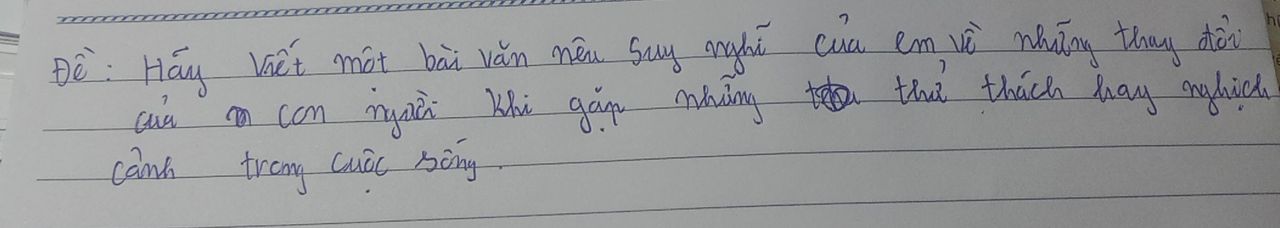 Đề : Hãy viết một bài văn nêu suy nghĩ của em về những thay đổi
của con người khi gặp những thử thách hay nghịch
cảnh trong cuộc sống.